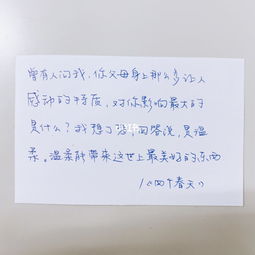 曾有人问我,你父母身上那么多让人
感动的特质,对你影响最大的
是什么?我想了想,回答说,是温
柔。温柔能带来这世上最美好的东西
/《四个春天》